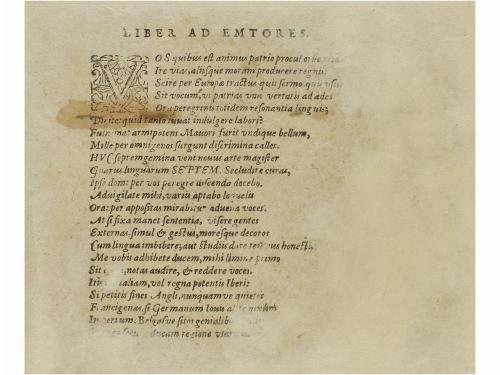 LIBER AD EMTORES.
VOS quibus est animus patrio procul orbe
Ire vias, aliisque moram producere regnis:
Scire per Europæ tractus quis sermo, quis
Sit vocum, ut patrias una vertatis ad ædes
Ora peregrinis totidem resonantia linguis;
Dicite: quid tanto iuvat indulgere labori?
armipotens Mavors furit undique bellum,
Mille per omnigenos surgunt discrimina calles.
HUC septemgemina veni novus arte magister
Gnarus linguarum SEPTEM. Secludite curas,
Ipse domi per vos peregre discenda docebo.
Advigilate mihi, variis aptabo loquelis
Ora: per appositas mirabitur advena voces.
At si fixa manet sententia, visere gentes
Externas, simul & gestus, moresque decoros
Cum lingua imbibere; aut studiis dare tempus honestis
Me vobis adhibete ducem, mihi limine primo
Sit notas audire, & reddere voces.
Italiam, vel regna potentis Iberi:
Si petitis fines Angli, nunquamve quietos
Francigenas, si Germanum Iovis
Imperium, Belgasve sitos genialibus
ducam regione